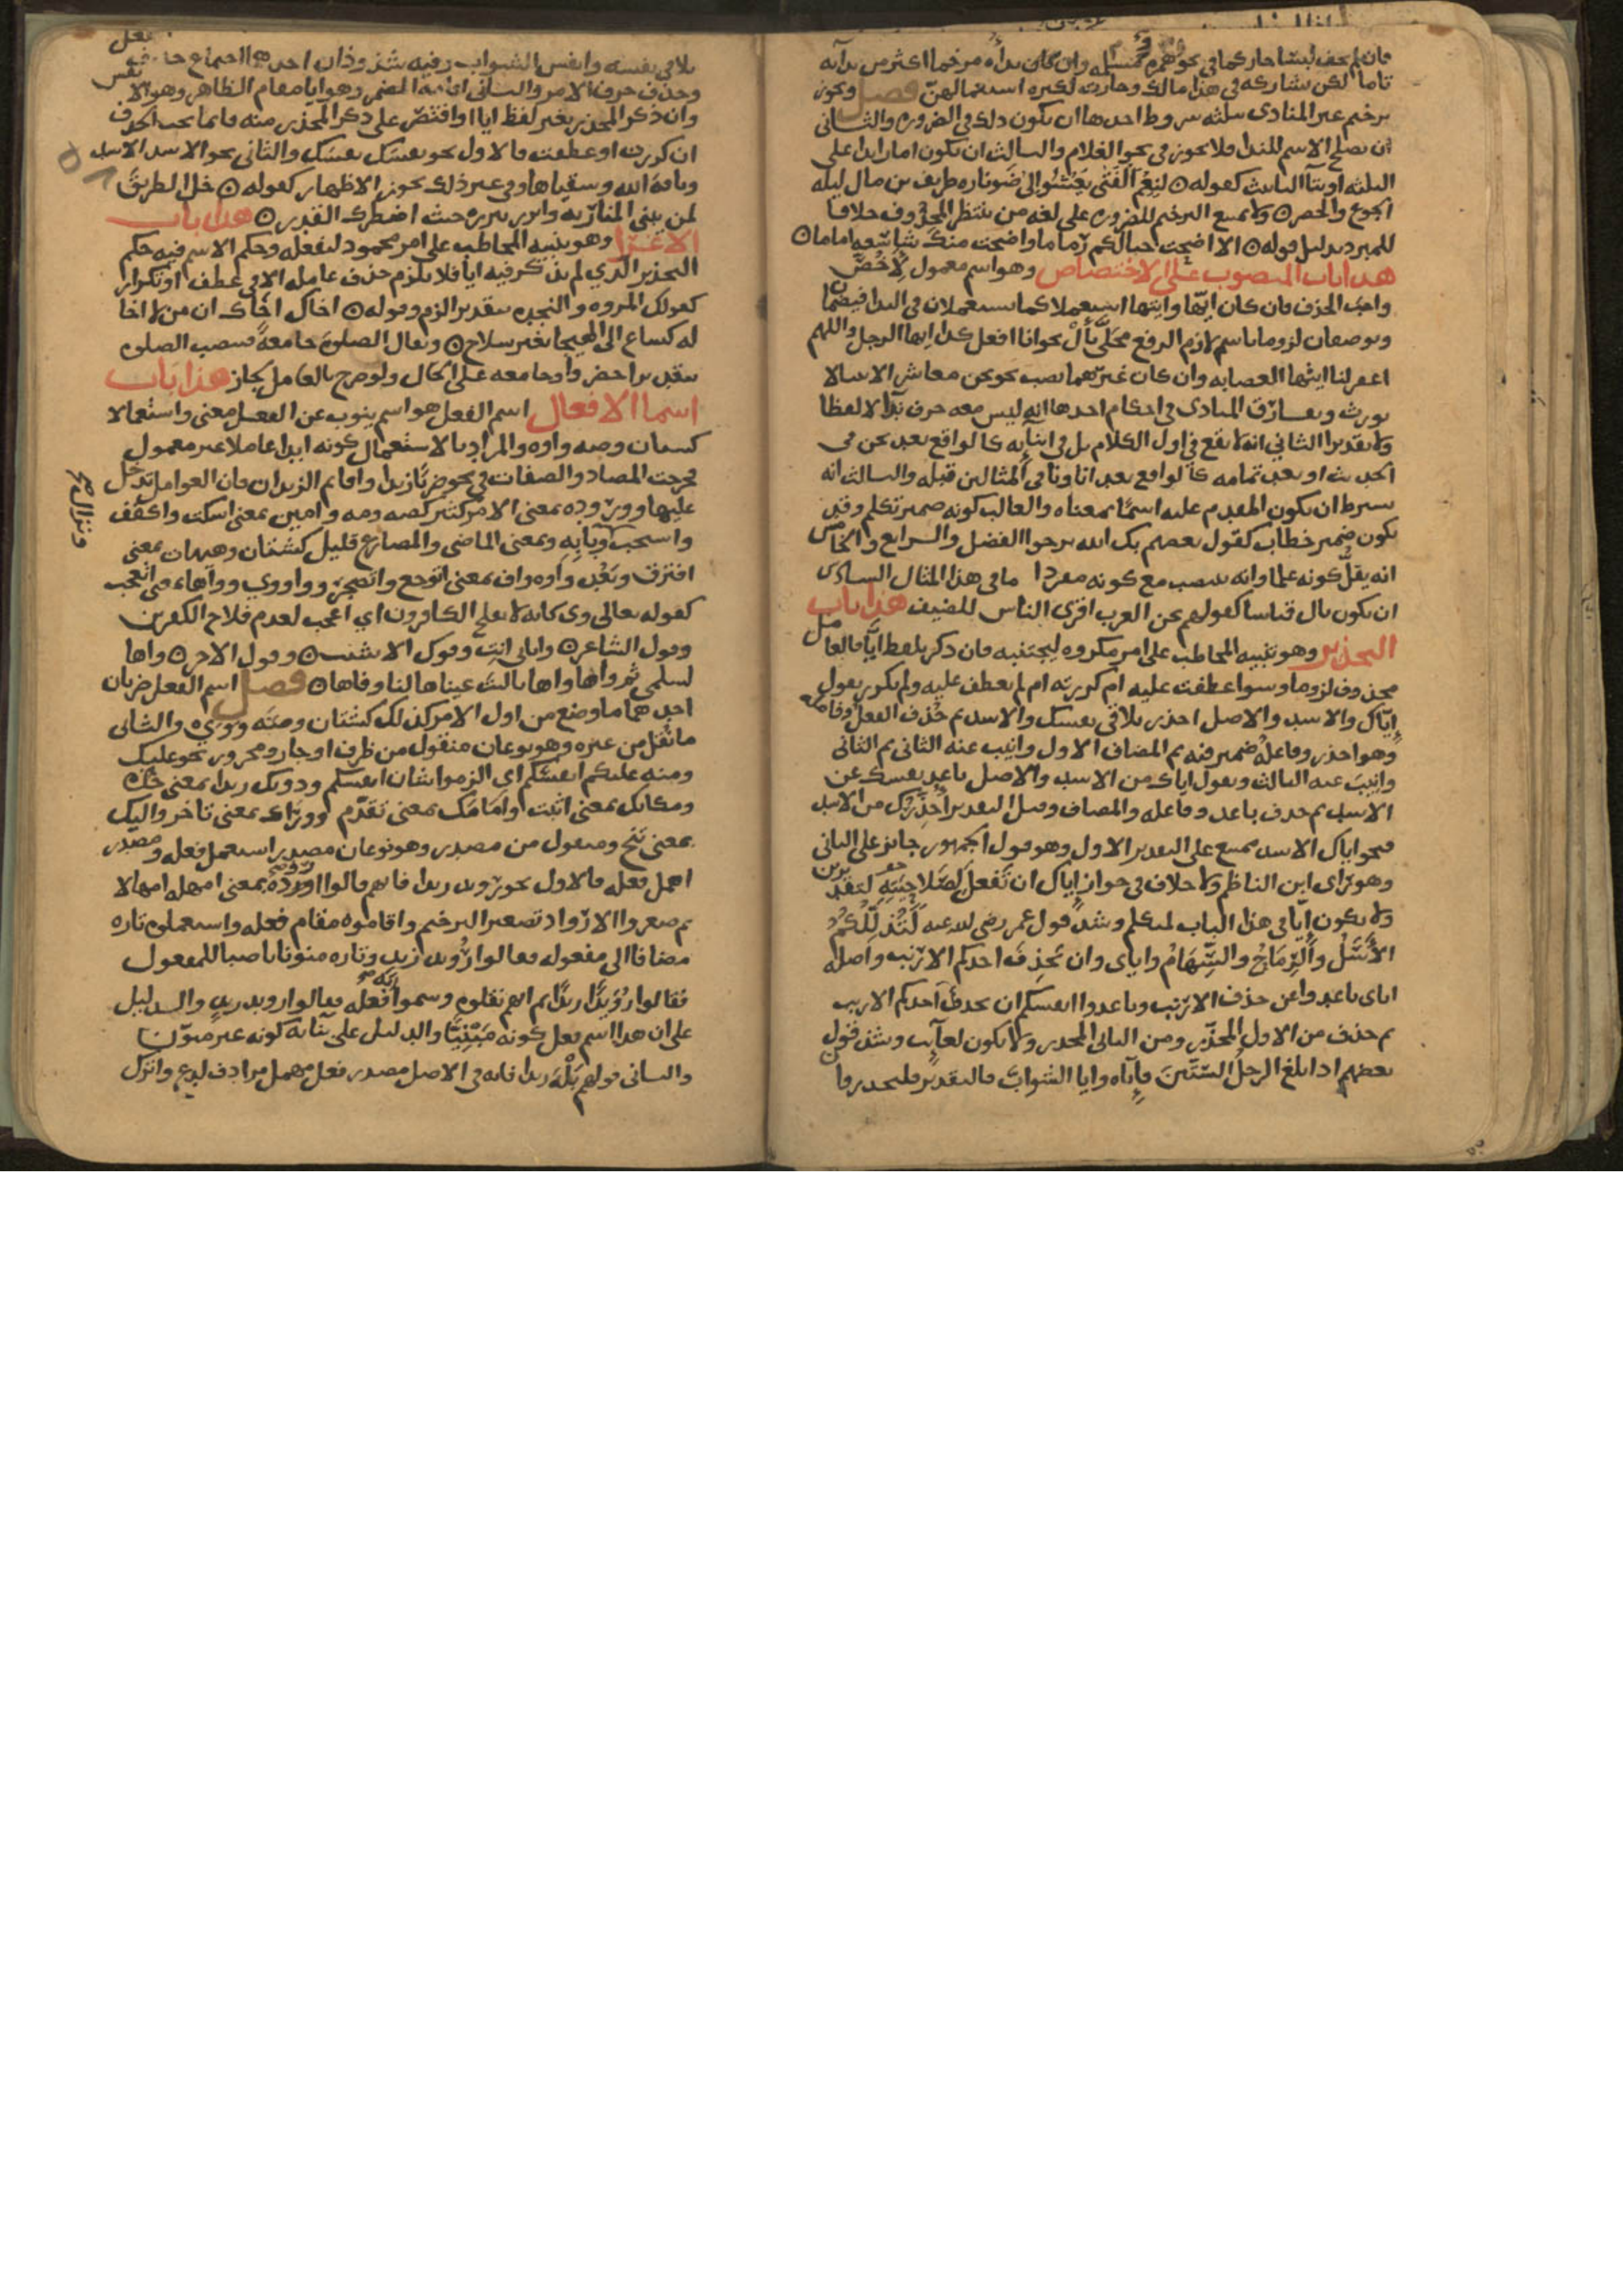 فان لم يخف لبسا جاز كما في نحو همزة ومسلمة وان كان نداؤه مرخما اكثر من ندائه
تاما لكن يشاركه في هذا مالك وحارث لكثرة استعمالهن فصل ويجوز
ترخيم غير المنادى بثلثه شروط احدها ان يكون ذلك في الضرورة والثاني
ان يصلح الاسم للندا فلا يجوز في نحو الغلام والثالث ان يكون اما زايدا على
الثلثه او بتا التانيث كقوله ٥ لنعم الفتى يعشوا الى ضو ناره طريف بن مال ليله
الجوع والخصر ٥ ولا يمتنع الترخيم للضرورة على لغه من ينتظر المحذوف خلافا
للمبرد بدليل قوله ٥ الا اضحت حبالكم رماما واضحت منك شاسعه اماما ٥
هذا باب المنصوب على الاختصاص وهو اسم معمول لاخص
واجب الحذف فان كان ايها وايتها استعملا كما يستعملان في الندا فيضمان
ويوصفان لزوما باسم لازم الرفع محلى بال نحو انا افعل كذا ايها الرجل واللهم
اغفر لنا ايتها العصابه وان كان غيرهما نصب نحو نحن معاشر الانبيا لا
نورث ويفارق المنادى في احكام احدها انه ليس معه حرف ندا لا لفظا
ولا تقديرا الثاني انه لا يقع في اول الكلام بل في اثنايه كالواقع بعد نحن في
الحديث او بعد تمامه كالواقع بعد انا ونا في المثالين قبله والثالث انه
يشترط ان يكون المقدم عليه اسما بمعناه والغالب كونه ضمير تكلم وقد
يكون ضمير خطاب كقول بعضهم بك الله نرجوا الفضل والرابع والخامس
انه يقل كونه علما وانه ينصب مع كونه مفردا ما في هذا المثال السادس
ان يكون بال قياسا كقولهم نحن العرب اقرى الناس للضيف هذا باب
التحذير وهو تنبيه المخاطب على امر مكروه ليجتنبه فان ذكر بلفظ ايا فالعامل
محذوف لزوما وسوا عطفت عليه ام كررته ام لم تعطف عليه ولم تكرر تقول
اياك والاسد والاصل احذر تلاقي نفسك والاسد ثم حذف الفعل وفاعله
وهو احذر وفاعله ضمير فيه ثم المضاف الاول وانيب عنه الثاني ثم الثاني
وانيب عنه الثالث وتقول اياك من الاسد والاصل باعد نفسك عن
الاسد ثم حذف باعد وفاعله والمضاف وقيل التقدير احذرك من الاسد
فنحو اياك الاسد ممتنع على التقدير الاول وهو قول الجمهور جايز على الثاني
وهو راى ابن الناظم ولا خلاف في جواز اياك ان تفعل لصلاحيته لتقدير من
ولا تكون ايا في هذا الباب لمتكلم وشذ قول عمر رضي الله عنه لتذك لكم
الاسل والرماح والسهام واياي وان يحذف احدكم الارنب واصله
اياي باعدوا عن حذف الارنب وباعدوا انفسكم ان يحذف احدكم الارنب
ثم حذف من الاول المحذر ومن الثاني المحذر ولا تكون لغايب وشذ قول
بعضهم اذا بلغ الرجل الستين فاياه وايا الشواب فالتقدير فليحذر
تلاقي نفسه وانفس الشواب وفيه شذوذان احدهما اجتماع حذف الفعل
وحذف حرف الامر والثاني اقامة المضمر وهو ايا مقام الظاهر وهو الانفس
وان ذكر المحذر بغير لفظ ايا او اقتصر على ذكر المحذر منه فانما يجب الحذف
ان كررت او عطفت فالاول نحو نفسك نفسك والثاني نحو الاسد الاسد
وناقة الله وسقياها وفي غير ذلك يجوز الاظهار كقوله ٥ خل الطريق
لمن يبني المنار به وابرز ببرزه حيث اضطرك القدر ٥ هذا باب
الاغرا وهو تنبيه المخاطب على امر محمود ليفعله وحكم الاسم فيه حكم
التحذير الذي لم يذكر فيه ايا فلا يلزم حذف عامله الا في عطف او تكرار
كقولك المروه والنجده بتقدير الزم وقوله ٥ اخاك اخاك ان من لا اخا
له كساع الى الهيجا بغير سلاح ٥ ويقال الصلوة جامعة فتنصب الصلوة
بتقدير احضروا وجامعه على الحال ولو صرح بالعامل لجاز هذا باب
اسما الافعال اسم الفعل هو اسم ينوب عن الفعل معنى واستعمالا
كشتان وصه واوه والمراد بالاستعمال كونه ابدا عاملا غير معمول
فخرجت المصادر والصفات في نحو ضربا زيدا واقايم الزيدان فان العوامل تدخل
عليها وورده بمعنى الامر كثير كصه ومه وامين بمعنى اسكت واكفف
واستجب وبابه ونزال صح وبمعنى الماضي والمضارع قليل كشتان وهيهات بمعنى
افترق وبعد واوه واف بمعنى اتوجع واتضجر ووا ووي وواها بمعنى اتعجب
كقوله تعالى وى كانه لا يفلح الكافرون اي اعجب لعدم فلاح الكافرين
وقول الشاعر ٥ وابابي انت وفوك الاشنب ٥ وقول الاخر ٥ واها
لسلمى ثم واها واها يا ليت عيناها لنا وفاها ٥ فصل اسم الفعل ضربان
احدهما ما وضع من اول الامر كذلك كشتان ومه ووي والثاني
ما نقل من غيره وهو نوعان منقول من ظرف او جار ومجرور نحو عليك
ومنه عليكم انفسكم اي الزموا شان انفسكم ودونك زيدا بمعنى خذه
ومكانك بمعنى اثبت وامامك بمعنى تقدم ووراك بمعنى تاخر واليك
بمعنى تنح ومنقول من مصدر وهو نوعان مصدر استعمل فعله ومصدر
اهمل فعله فالاول نحو رويد زيدا فانهم قالوا اروده بمعنى امهله امهالا
ثم صغروا الارواد تصغير الترخيم واقاموه مقام فعله واستعملوه تاره
مضافا الى مفعوله فقالوا رويد زيد وتاره منونا ناصبا للمفعول
فقالوا رويدا زيدا ثم انهم نقلوه وسموا به فعله فقالوا رويد زيدا والدليل
على ان هذا اسم فعل كونه مبنيا والدليل على بنائه كونه غير منون
والثاني قولهم بله زيدا فانه في الاصل مصدر فعل مهمل مرادف لدع واترك